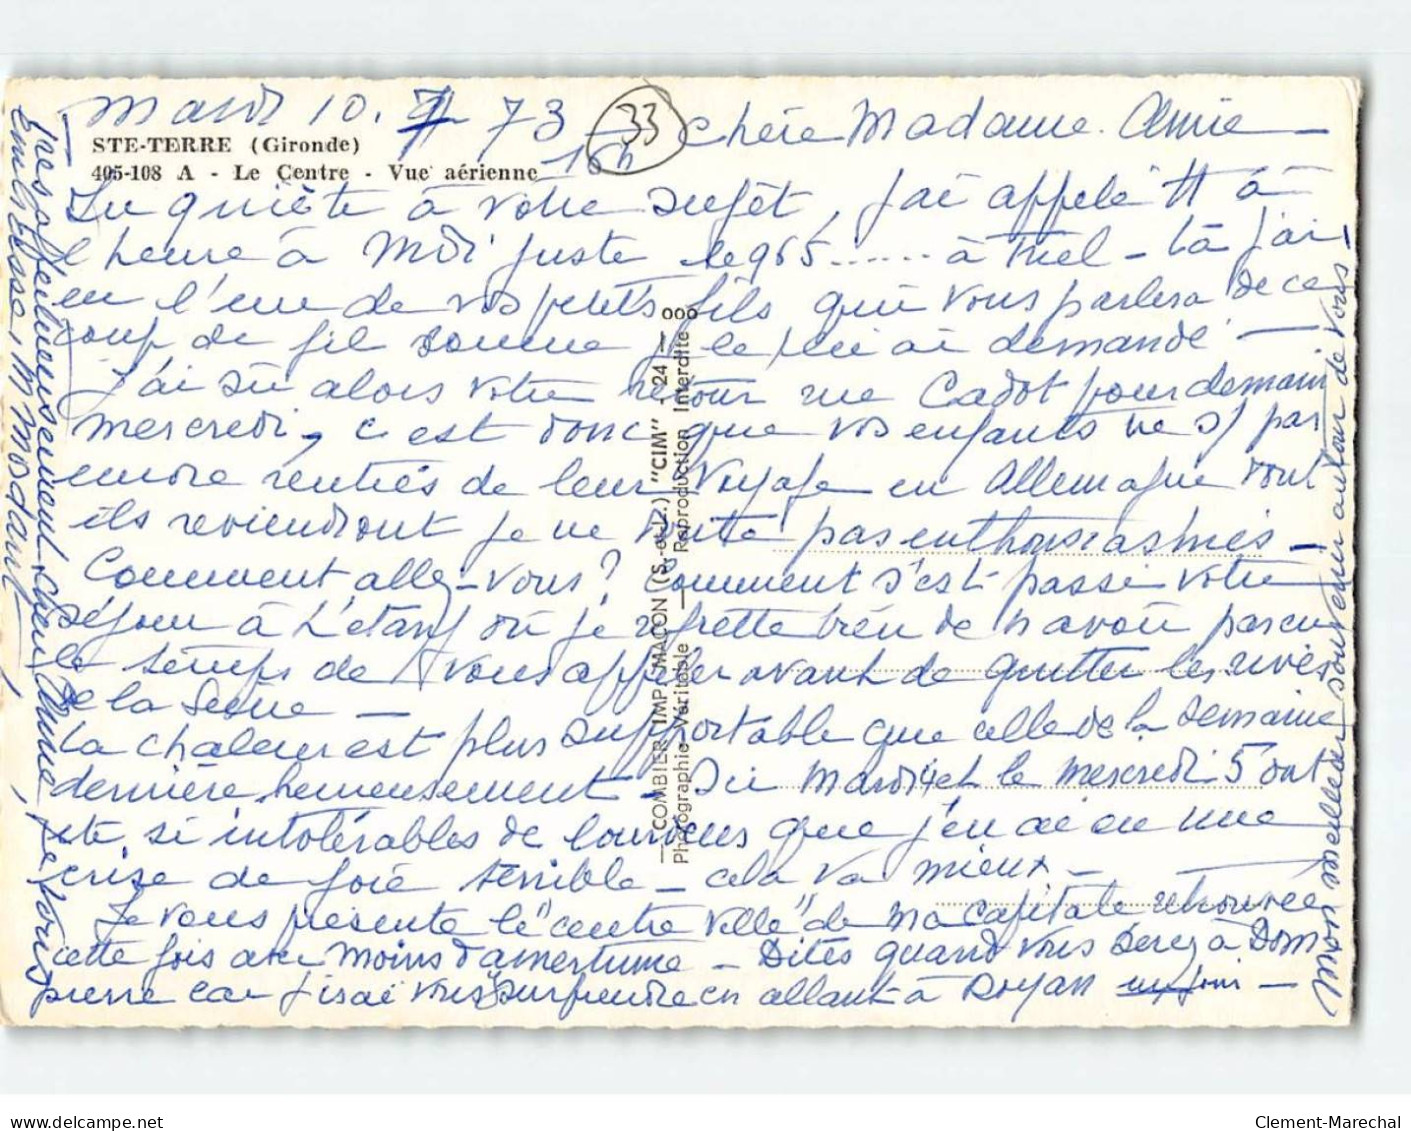 Mardi 10. 7. 73 - chère Madame Amie -
16h
33
STE-TERRE (Gironde)
405-108 A - Le Centre - Vue aérienne
Inquiète à votre sujet, j'ai appelé tt à
l'heure à Midi juste le 965 ...... à Triel - là j'ai
eu l'un de vos petits fils qui vous parlera de ce
coup de fil comme je le lui ai demandé -
J'ai su alors votre retour rue Cadot pour demain
mercredi, c'est donc que vos enfants ne st pas
encore rentrés de leur voyage en Allemagne dont
ils reviendront je ne doute pas enthousiasmés -
Comment allez-vous? Comment s'est passé votre
séjour à L'étang où je regrette bien de n'avoir pas eu
le temps de vous appeler avant de quitter les rives
de la Seine -
La chaleur est plus supportable que celle de la semaine
dernière, heureusement - Du Mardi 4 et le mercredi 5 ont
été si intolérables de lourdeurs que j'en ai eu une
crise de foie terrible - cela va mieux -
Je vous présente le "centre ville" de ma capitale retrouvée
cette fois avec moins d'amertume - Dites quand vous serez à Dom
pierre car j'irai vous surprendre en allant à Royan un jour -
mon meilleur souvenir autour de vous
Très affectueusement, chère Amie, je vous
COMBIER IMP. MACON (S.-et-L.) "CIM" - 24 - ooo
Photographie Véritable - Reproduction Interdite
delcampe.net
Clement-Marechal